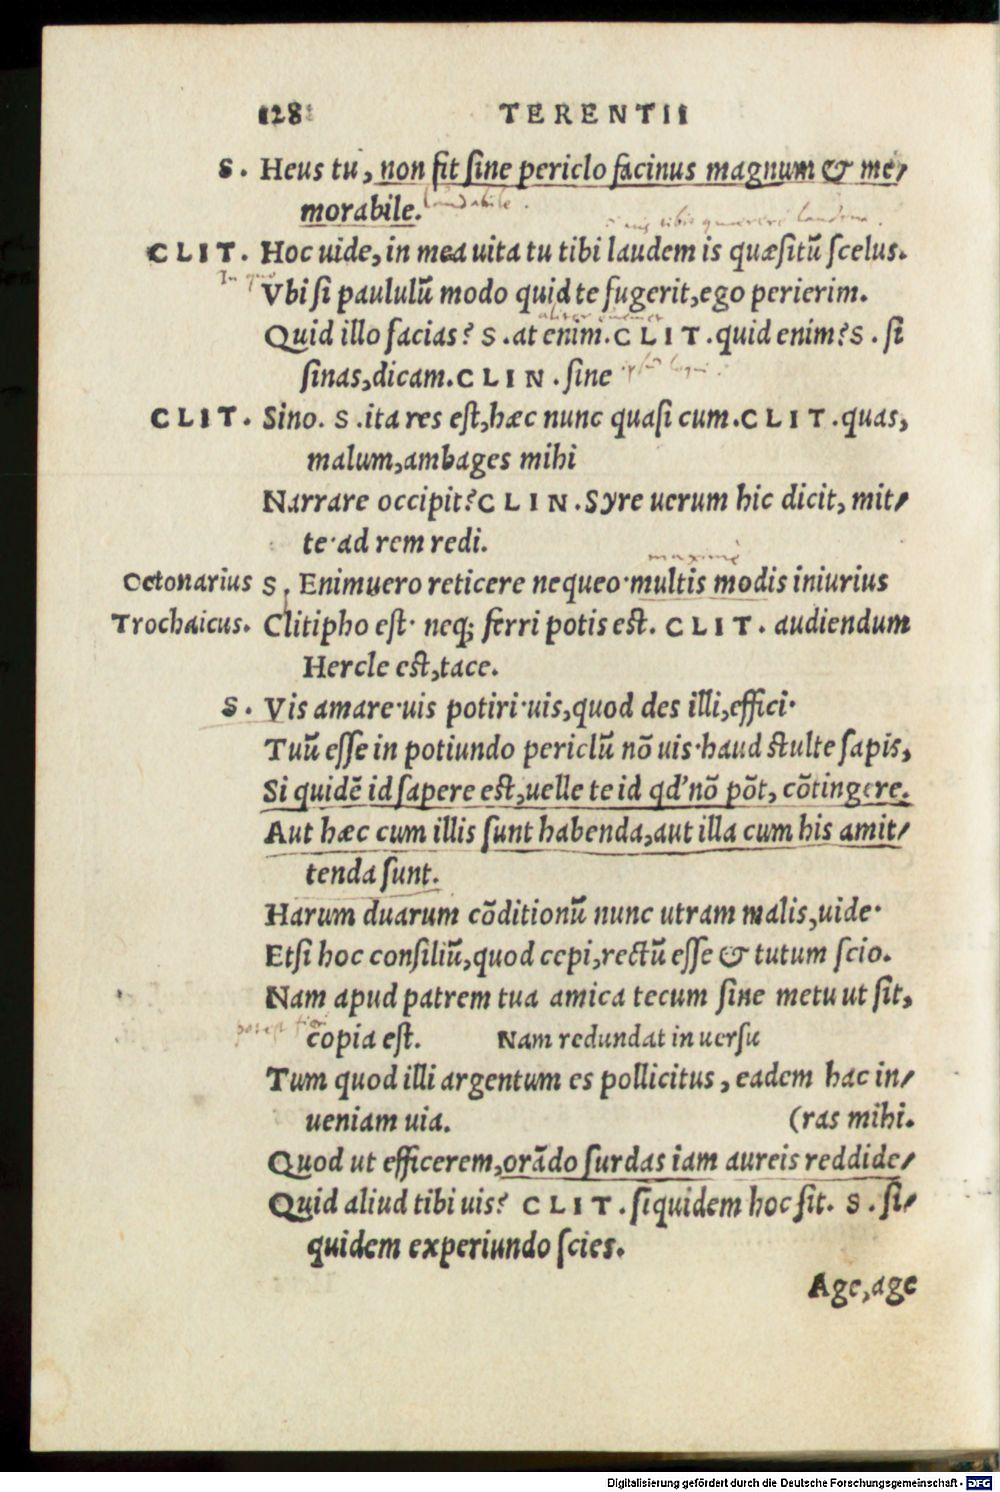 128 TERENTII
S. Heus tu, non fit sine periclo facinus magnum & me/
morabile. laudabile.
CLIT. Hoc uide, in mea uita tu tibi laudem is quæsitū scelus.
In quo
Vbi si paululū modo quid te fugerit, ego perierim.
Quid illo facias? S. at enim. CLIT. quid enim? S. si
sinas, dicam. CLIN. sine
CLIT. Sino. S. ita res est, hæc nunc quasi cum. CLIT. quas,
malum, ambages mihi
Narrare occipit? CLIN. Syre uerum hic dicit, mit/
te·ad rem redi.
maxime
Octonarius S. Enimuero reticere nequeo·multis modis iniurius
Trochaicus. Clitipho est· neq; ferri potis est. CLIT. audiendum
Hercle est, tace.
S. Vis amare·uis potiri·uis, quod des illi, effici·
Tuū esse in potiundo periclū nō uis·haud stulte sapis,
Si quidē id sapere est, uelle te id qd' nō pōt, cōtingere.
Aut hæc cum illis sunt habenda, aut illa cum his amit/
tenda sunt.
Harum duarum cōditionū nunc utram malis, uide·
Etsi hoc consiliū, quod cepi, rectū esse & tutum scio.
Nam apud patrem tua amica tecum sine metu ut sit,
potest fieri copia est. Nam redundat in uersu
Tum quod illi argentum es pollicitus, eadem hac in/
ueniam uia. (ras mihi.
Quod ut efficerem, orādo surdas iam aureis reddide/
Quid aliud tibi uis? CLIT. siquidem hoc fit. S. si/
quidem experiundo scies.
Age, age
Digitalisierung gefördert durch die Deutsche Forschungsgemeinschaft - DFG